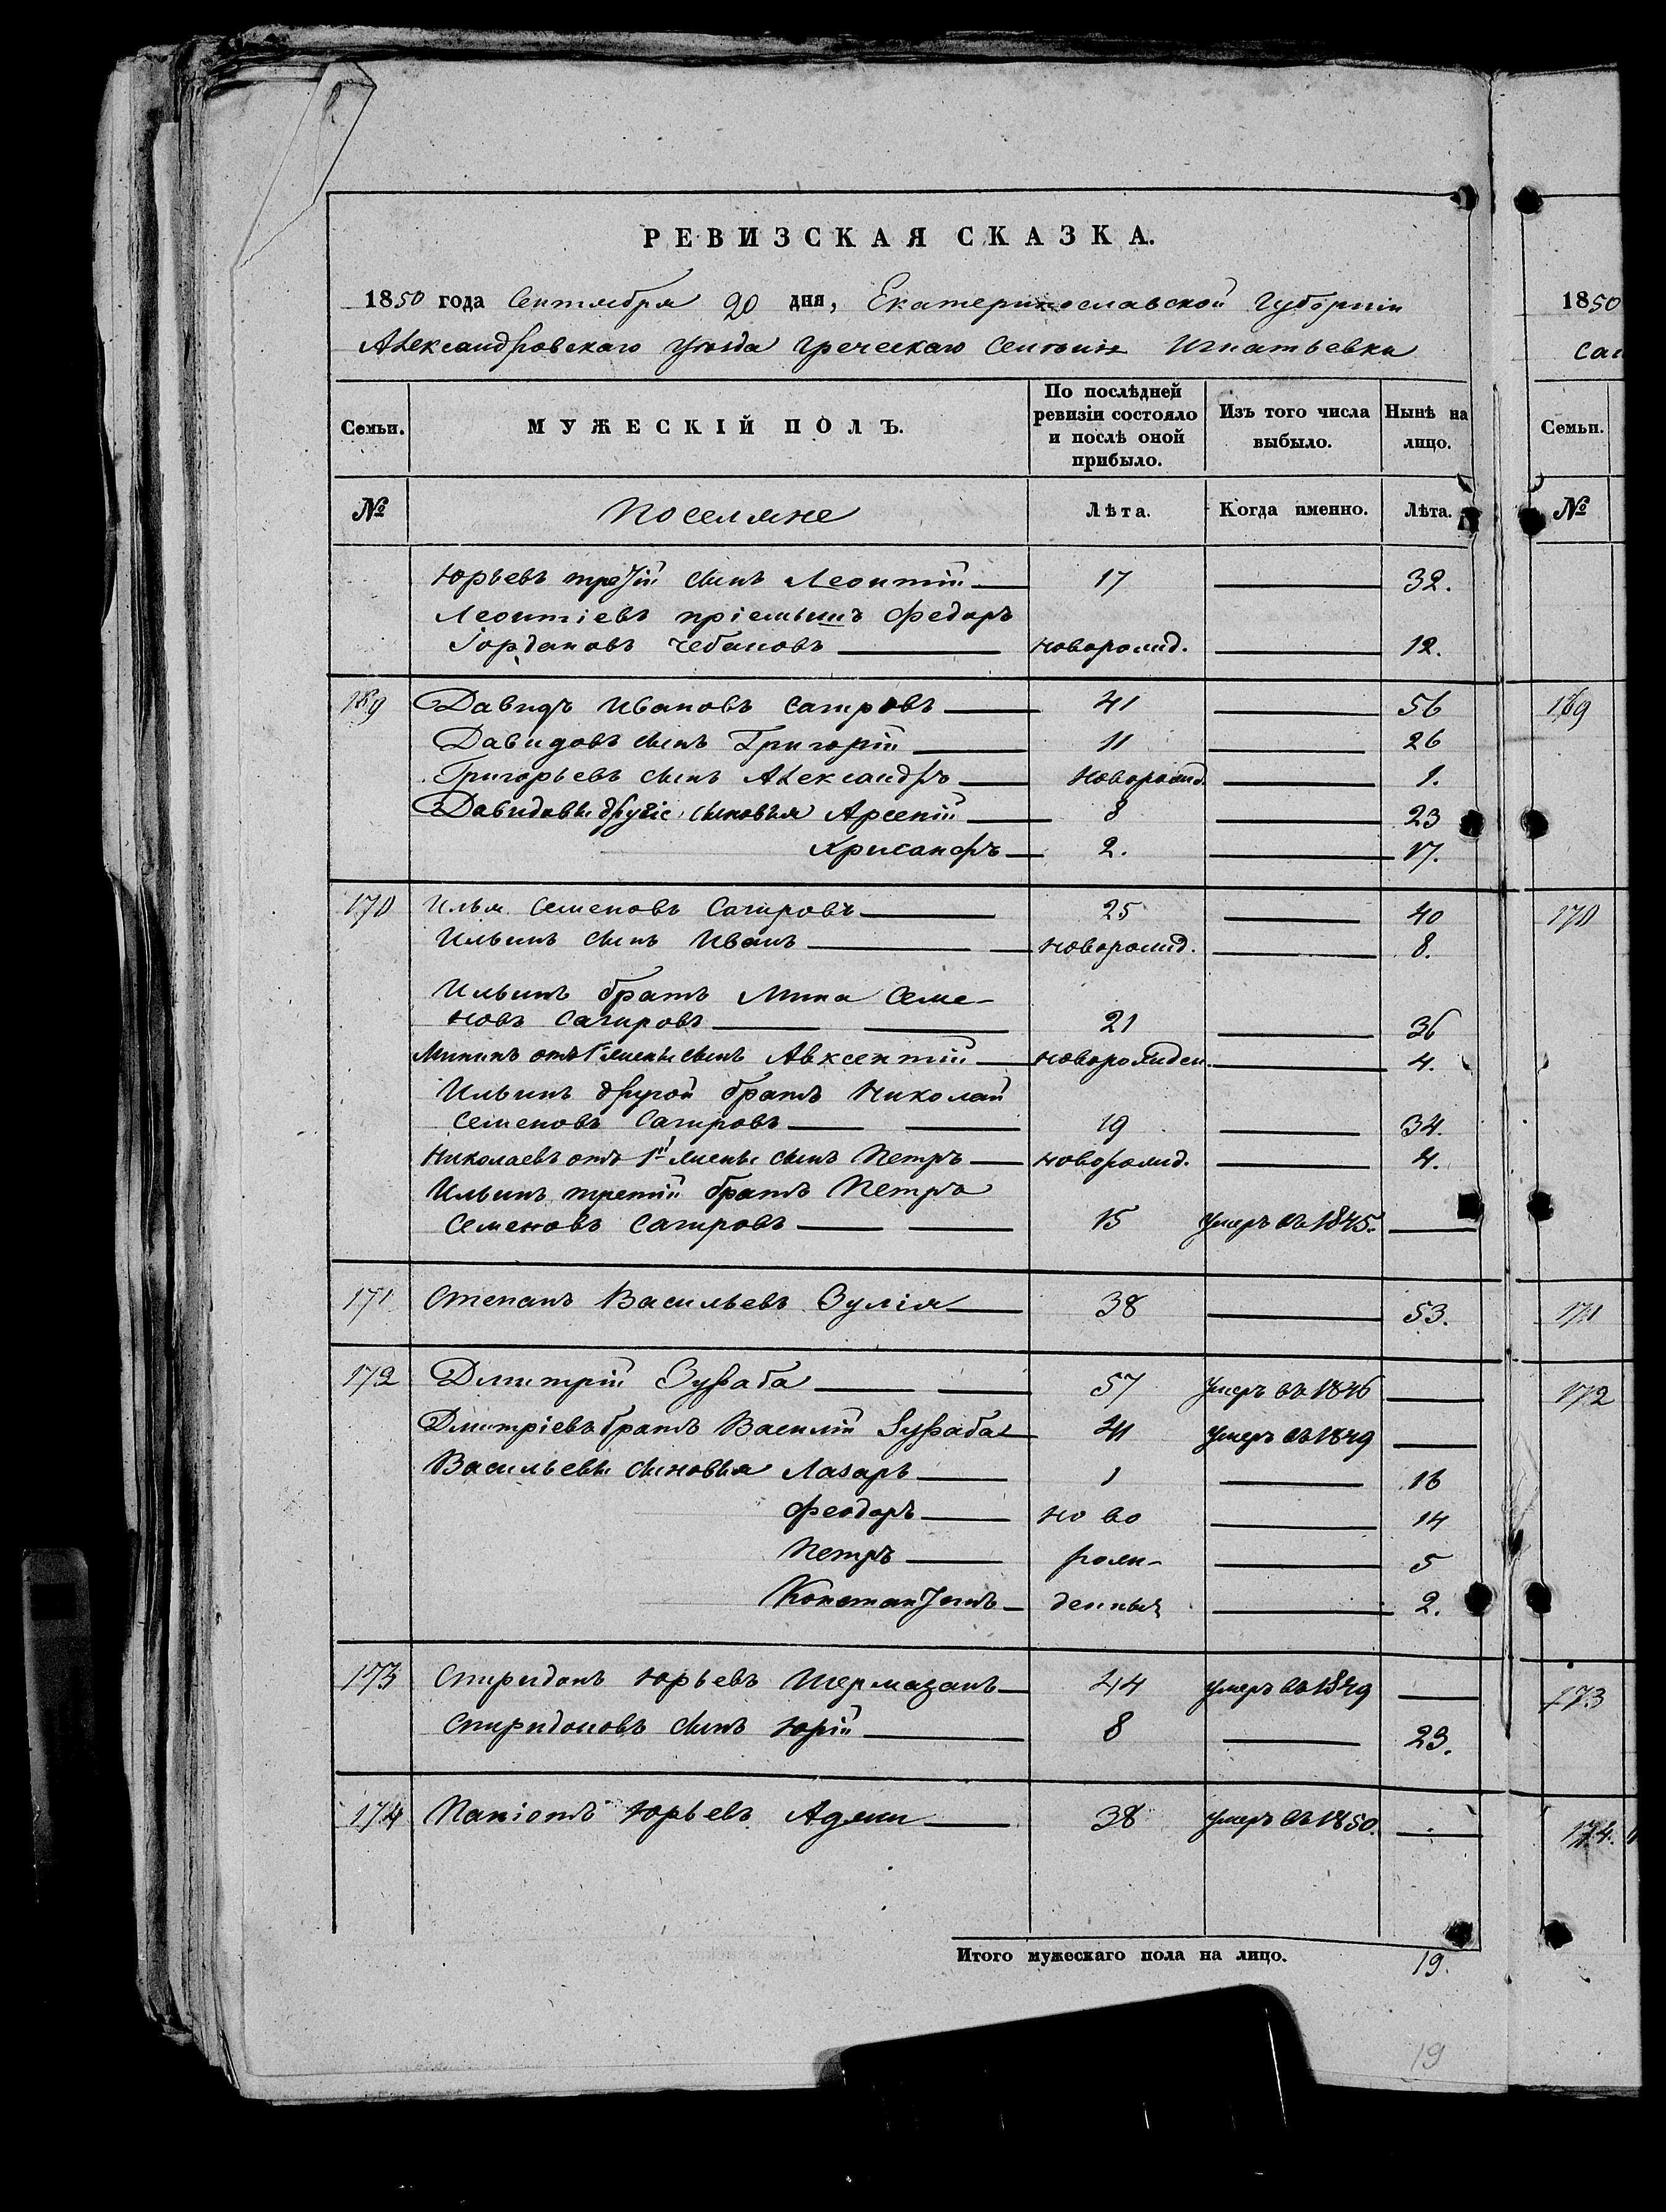 РЕВИЗСКАЯ СКАЗКА.
1850 года Сентября 20 дня, Екатеринославской Губерніи
Александровскаго Уѣзда Греческаго Селенія Игнатьевки
Семьи. МУЖЕСКІЙ ПОЛЪ. По послѣдней ревизіи состояло и послѣ оной прибыло. Изъ того числа выбыло. Нынѣ на лицо.
№ Поселяне Лѣта. Когда именно. Лѣта.
Юрьевъ третій сынъ Леонтій 17 32.
Леонтіевъ пріемышъ Федоръ
Іордановъ Чебановъ новорожд. 12.
169 Давидъ Ивановъ Сагировъ 41 56
Давидовъ сынъ Григорій 11 26
Григорьевъ сынъ Александръ новорожд. 1.
Давидовы другіе сыновья Арсеній 8 23
Хрисанфъ 2. 17.
170 Илья Семеновъ Сагировъ 25 40
Ильинъ сынъ Иванъ новорожд. 8.
Ильинъ братъ Мина Семе-
новъ Сагировъ 21 36
Мининъ отъ 1й жены сынъ Авксентій новорожден. 4.
Ильинъ другой братъ Николай
Семеновъ Сагировъ 19 34.
Николаевъ отъ 1й жены сынъ Петръ новорожд. 4.
Ильинъ третій братъ Петръ
Семеновъ Сагировъ 15 умеръ въ 1845.
171 Степанъ Васильевъ Зулія 38 53.
172 Дмитрій Зураба 57 умеръ въ 1846
Дмитріевъ братъ Василій Зураба 41 умеръ въ 1849
Васильевы сыновья Лазарь 1 16
Феодоръ ново 14
Петръ рож- 5
Константинъ денныя 2.
173 Спиридонъ Юрьевъ Шермазанъ 44 умеръ въ 1849
Спиридоновъ сынъ Юрій 8 23.
174 Папіотъ Юрьевъ Аджи 38 умеръ въ 1850.
Итого мужескаго пола на лицо. 19.
19
1850
Семьи.
№
169
170
171
172
173
174.